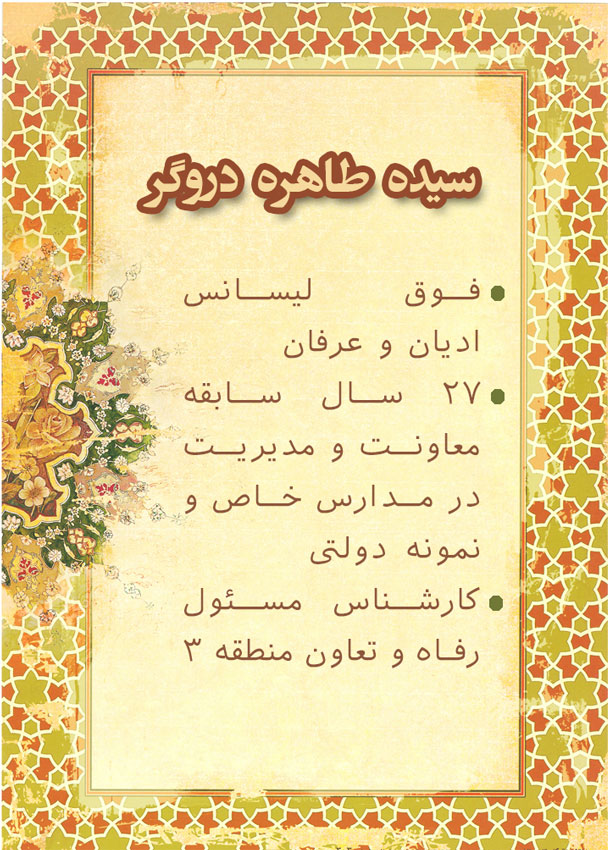 سیده طاهره دروگر
فوق لیسانس
ادیان و عرفان
۲۷ سال سابقه
معاونت و مدیریت
در مدارس خاص و
نمونه دولتی
کارشناس مسئول
رفاه و تعاون منطقه ۳